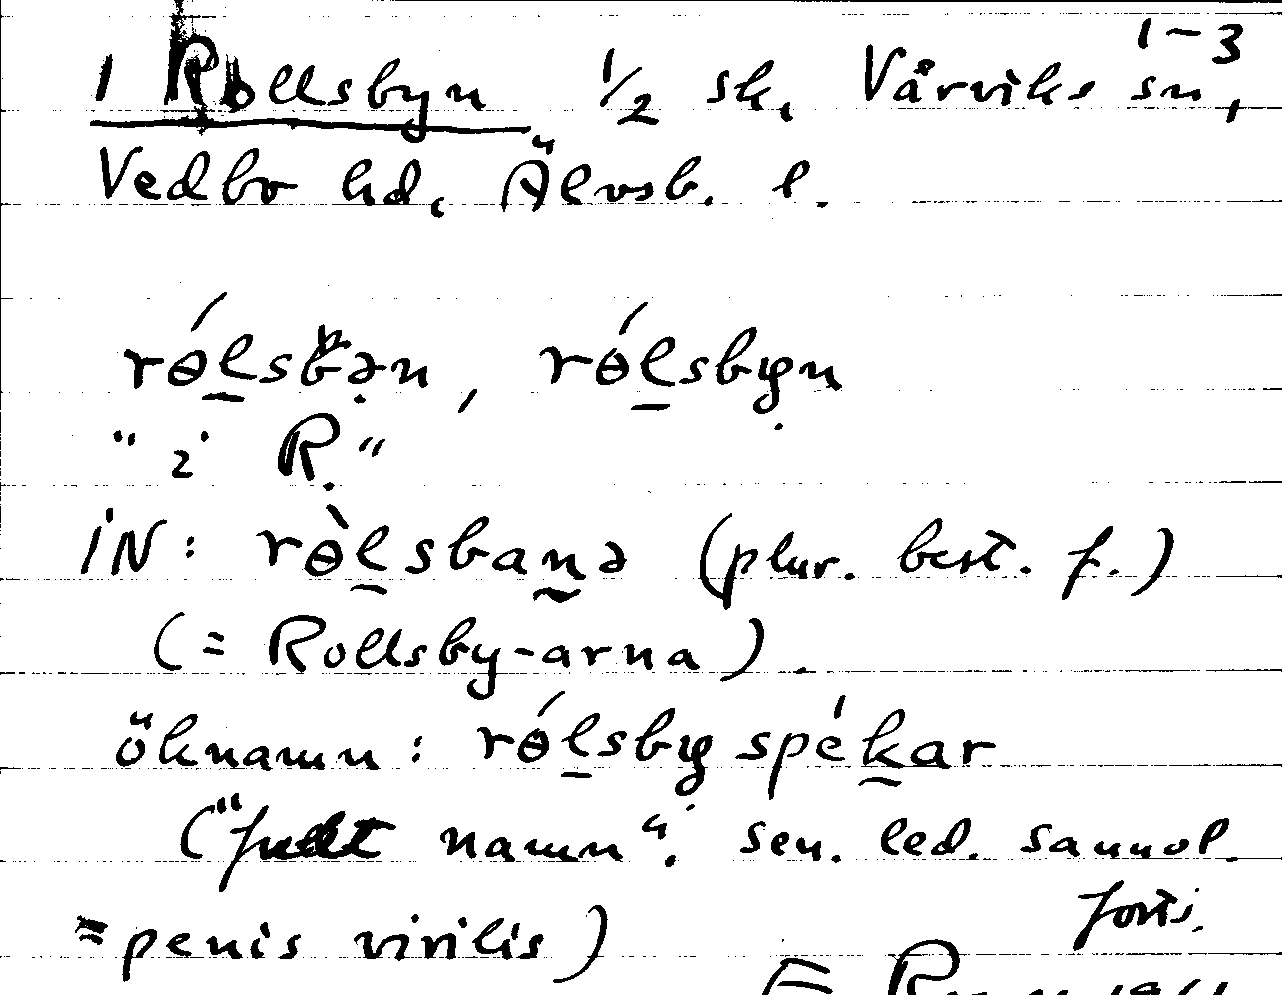 1-3
1 Rollsbyn 1/2 sk, Vårviks sn,
Vedbo hd, Älvsb. l.
rólsbən, rólsbyn
"i R."
IN: rɵ̀lsbanə (plur. best. f.)
(= Rollsby-arna).
öknamn: rɵ́lsby spékar
("fult namn". sen. led. sannol.
=penis virilis)
forts.